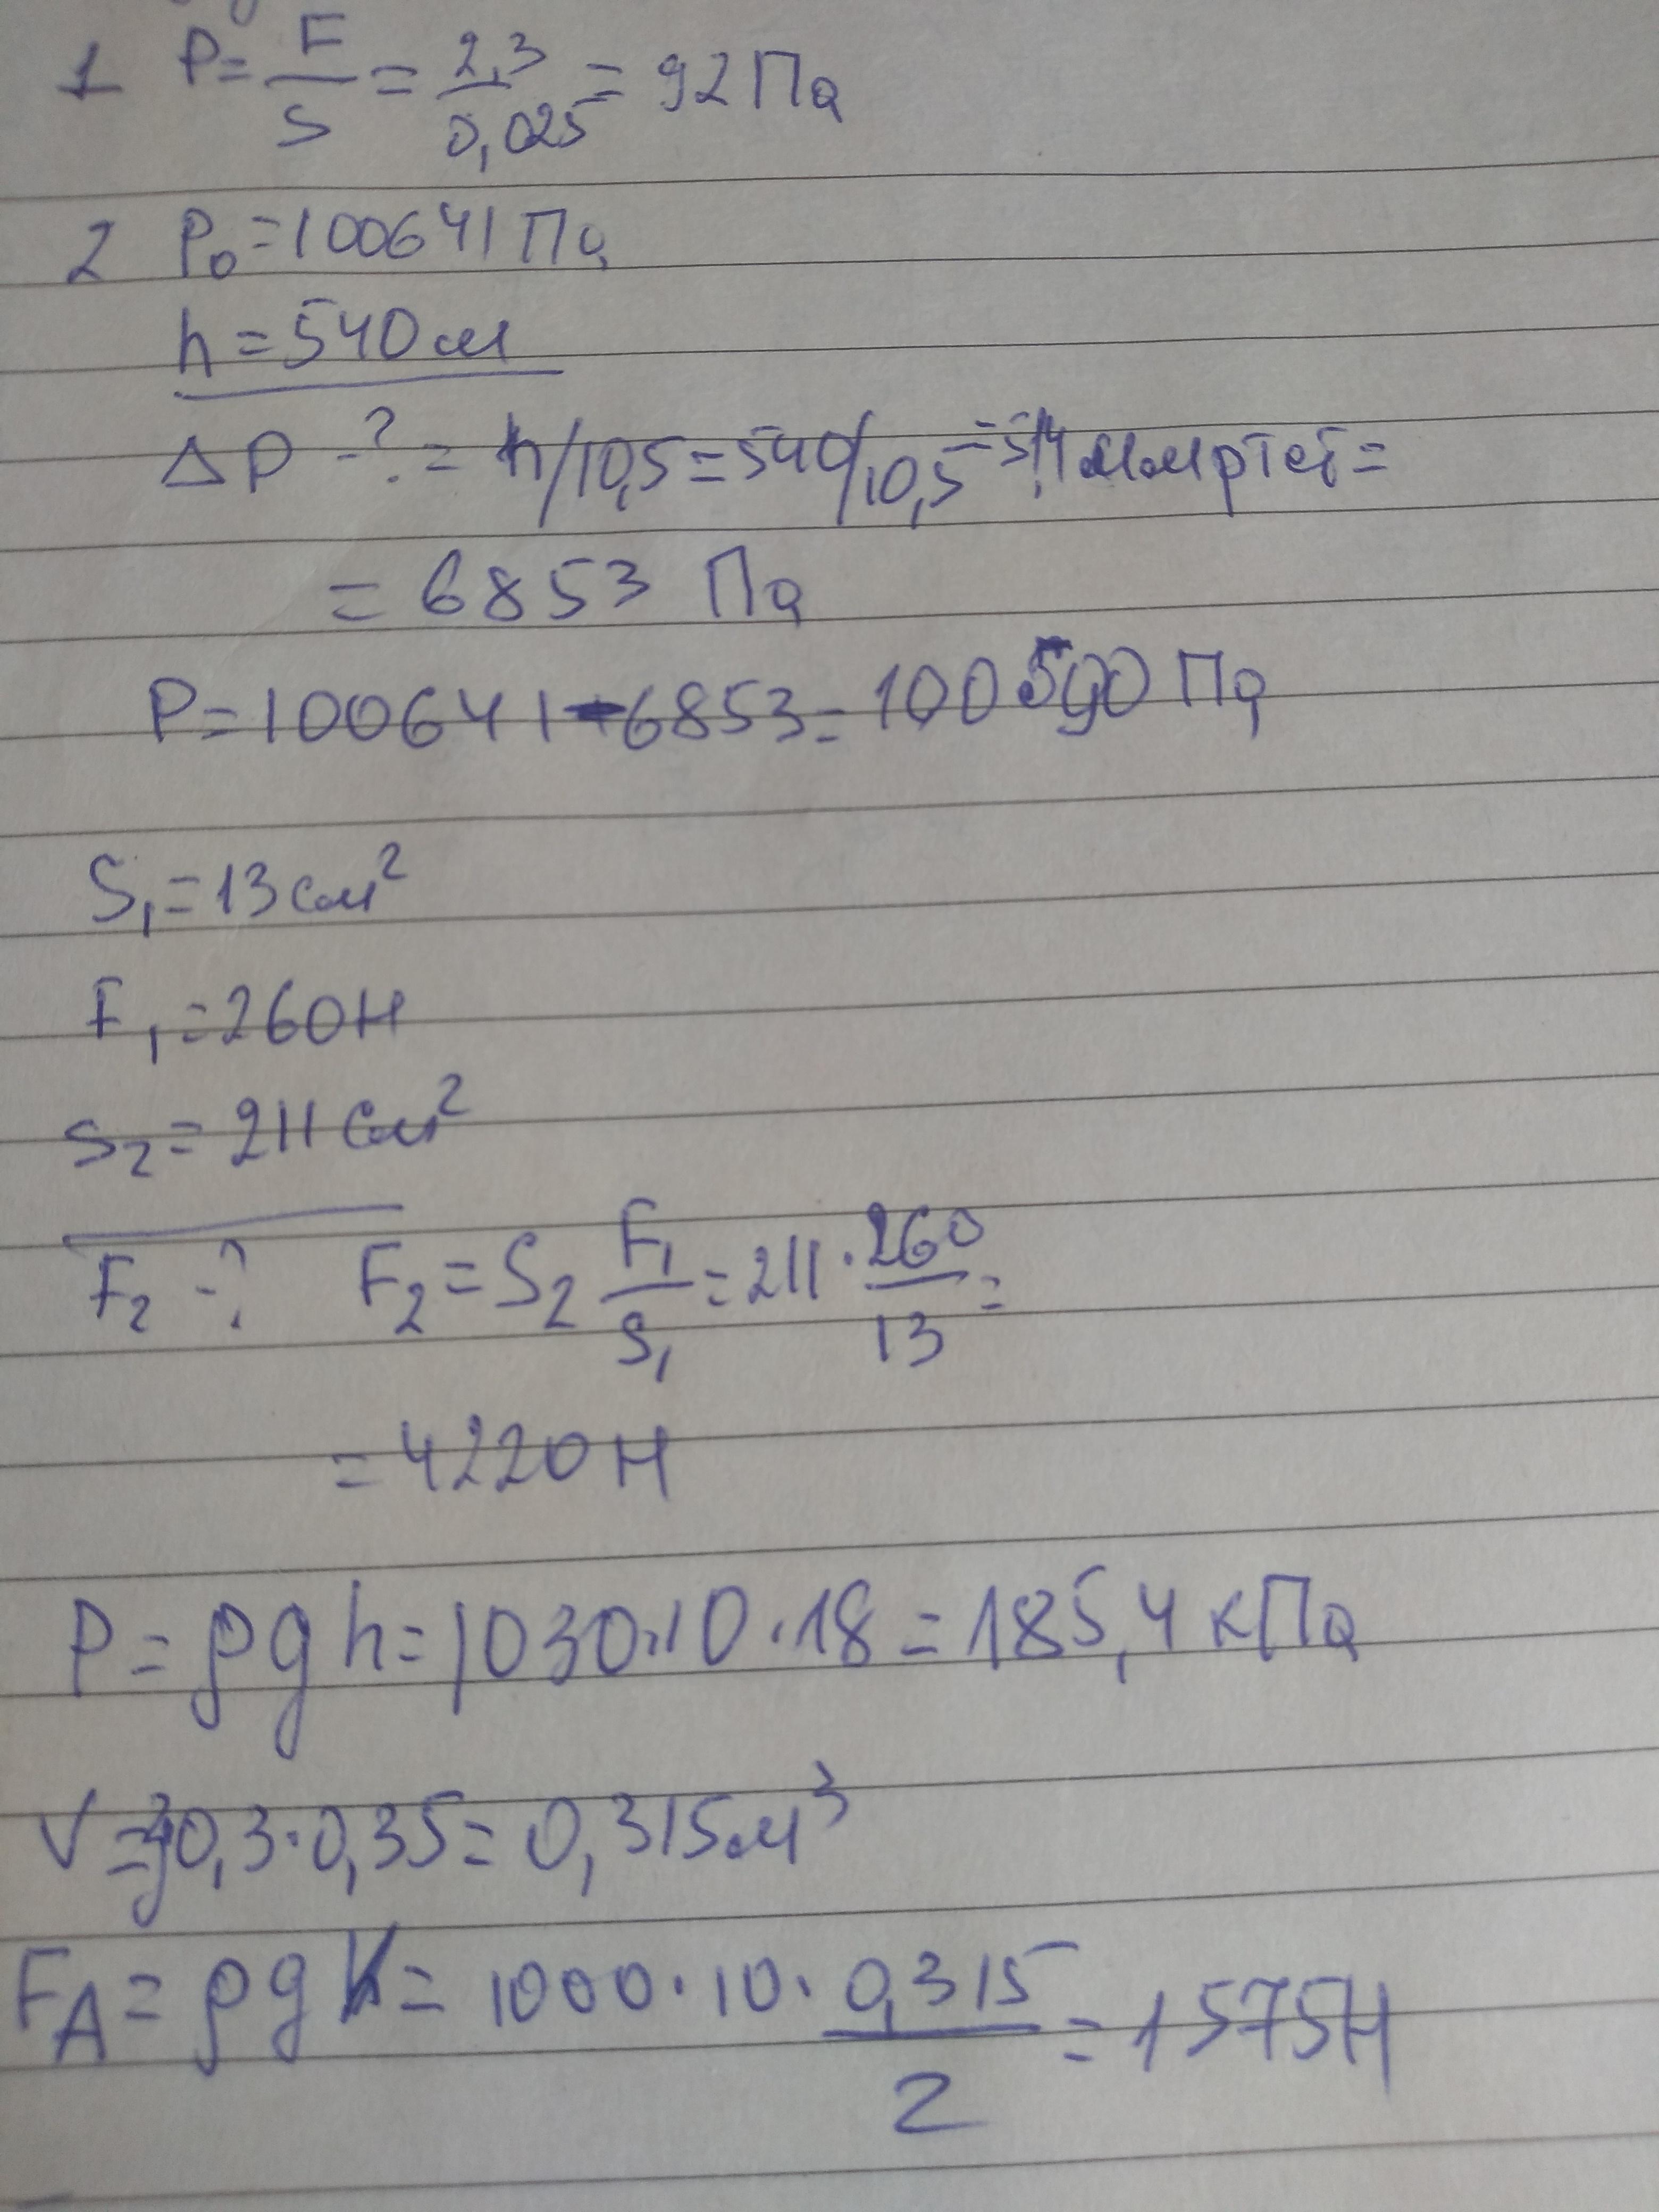 1 P = F/S = 2,3/0,025 = 92 Па
2 P₀ = 100641 Па
h = 540 см
ΔP - ? = h/10,5 = 540/10,5 = мм рт ст =
= 6853 Па
P = 100641 - 6853 = 100590 Па
S₁ = 13 см²
F₁ = 260 Н
S₂ = 211 см²
F₂ - ? F₂ = S₂ F₁/S₁ = 211 · 260/13 =
= 4220 Н
P = ρgh = 1030 · 10 · 18 = 185,4 кПа
V = 0,3 · 0,35 = 0,315 м³
F_A = ρgV = 1000 · 10 · 0,315/2 = 1575 Н